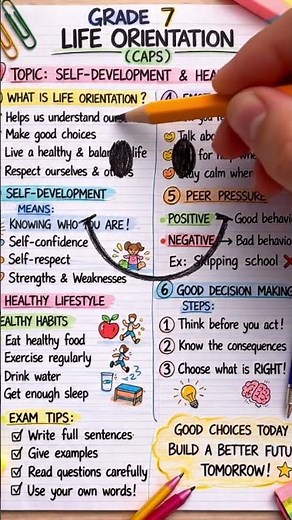 GRADE 7
LIFE ORIENTATION
(CAPS)
TOPIC: SELF-DEVELOPMENT &
WHAT IS LIFE ORIENTATION?
Helps us understand
Make good choices
Live a healthy & life
Respect ourselves &
SELF-DEVELOPMENT
MEANS:
KNOWING WHO YOU ARE!
Self-confidence
Self-respect
Strengths & Weaknesses
HEALTHY LIFESTYLE
HABITS
Eat healthy food
Exercise regularly
Drink water
Get enough sleep
EXAM TIPS:
Write full sentences
Give examples
Read questions carefully
Use your own words!
4
when
5 PEER PRESSURE
POSITIVE → Good
NEGATIVE → Bad
Ex: Skipping school
6 GOOD DECISION
STEPS:
1 Think before you act!
2 Know the consequences
3 Choose what is RIGHT!
GOOD CHOICES TODAY
BUILD A BETTER
TOMORROW!